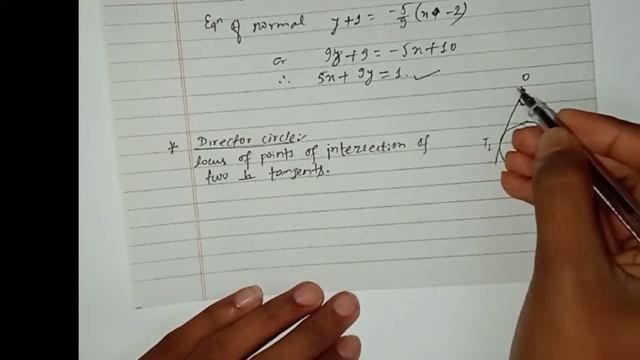 Eqⁿ of normal y+1 = -5/9 (x -2)
or 9y+9 = -5x+10
∴ 5x+9y=1.
* Director circle:-
locus of points of intersection of
two ⊥ tangents.
O
T₁